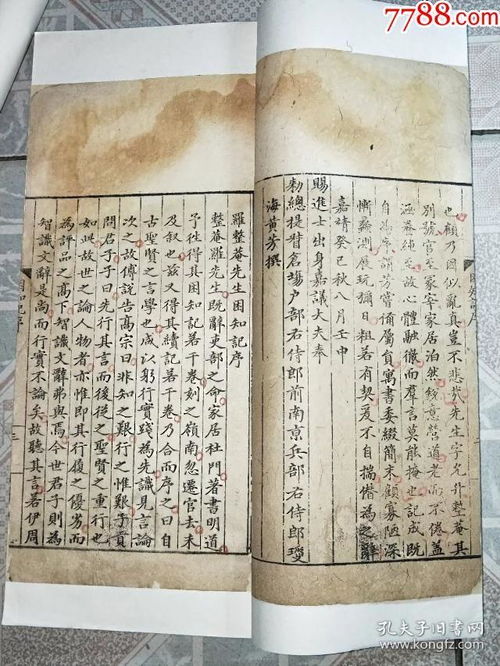 7788.com
也顧乃因似亂真豈不悲哉先生字允升整庵其
別號官至冢宰家居泊然絶意營道老而不倦蓋
涵養純至故心體融徹而群言莫能掩也記成既
自為序謂芳嘗備屬負寓書委綴簡末顧寡陋深
慚蠡測展玩彌日粗若有契爰不自揣僭為之辭
嘉靖癸巳秋八月壬申
賜進士出身嘉議大夫奉
勅總提督倉場戶部右侍郎前南京兵部右侍郎瓊
海黃芳撰
困知記序
羅整庵先生困知記序
整庵羅先生既辭吏部之命家居杜門著書明道
予往得其困知記若干卷刻之嶺南忽遷官去未
及叙也茲又得其續記若干卷乃合而序之曰自
古聖賢之言學也咸以躬行實踐為先識見言論
次之故傅說告高宗曰非知之艱行之惟艱子貢
問君子子曰先行其言而後從之聖賢之重行也
如此故世之論人物者亦惟即其行履之優劣而
為評品之高下智識文辭弗與焉今世君子則為
智識文辭是尚而行實不論矣故聽其言若伊周
孔夫子旧书网
www.kongfz.com